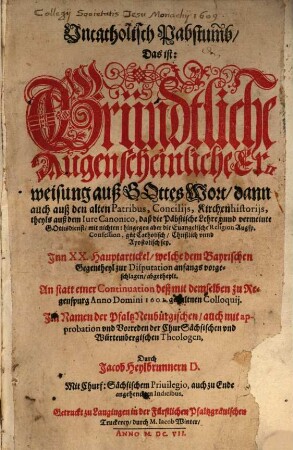 Collegij Societatis Jesu Monachij 1609.
Vncatholisch Pabstumb/
Das ist:
Gründtliche
Augenscheinliche Er-
weisung auß GOttes Wort/ dann
auch auß den alten Patribus, Concilijs, Kirchenhistorijs,
theyls auß dem Iure Canonico, daß die Päbstische Lehre vnnd vermeinte
GOttesdienst/ mit nichten: hingegen aber die Euangelische Religion Augsp.
Confession, gut Catholisch/ Christlich vnnd
Apostolisch sey.
Inn XX. Hauptartickel/ welche dem Bayrischen
Gegentheyl zur Disputation anfangs vorge-
schlagen/ abgetheylt.
An statt einer Continuation deß mit demselben zu Re-
genspurg Anno Domini 1601. gehaltenen Colloquij.
Im Namen der Pfaltz Neubürgischen/ auch mit ap-
probation vnd Vorreden der Chur Sächsischen vnd
Würtembergischen Theologen,
Durch
Jacob Heylbrunnern D.
Mit Churf: Sächsischem Priuilegio, auch zu Ende
angehenckten Indicibus.
Getruckt zu Laugingen in der Fürstlichen Pfaltzgräuischen
Truckerey/ durch M. Iacob Winter/
ANNO M. DC. VII.